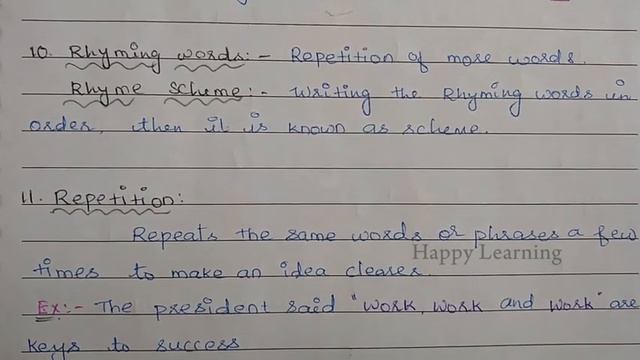 10. Rhyming words:- Repetition of more words.
Rhyme scheme:- writing the Rhyming words in
order, then it is known as scheme.
11. Repetition:
Repeats the same words or phrases a few
Happy Learning
times to make an idea clearer.
Ex:- The president said "work, work and work" are
keys to success